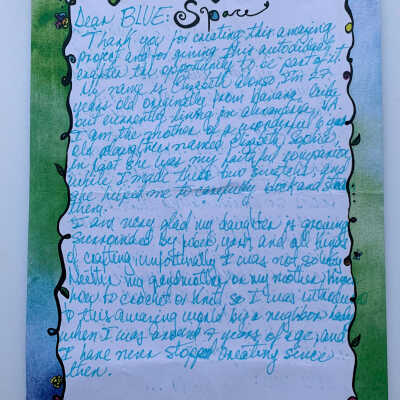 Dear BLUE: Space
Thank you for creating this amazing
project and for giving this autodidact
crafter the opportunity to be part of it
My name is Elizabeth Alonso I'm 27
years old originally from Havana, Cuba
but currently living in Alexandria, VA.
I am the mother of a wonderful 6 year
old daughter named Elizabeth Sophia,
in fact she was my faithful companion
while I made these two swatches, and
she helped me to carefully block and
them.
I am very glad my daughter is growing
surrounded by fiber, yarn, and all kinds
of crafting, unfortunately I was not so lucky
Neither my grandmother or my mother knew
how to crochet or knit so I was introduced
to this amazing world by a neighbor
when I was around 7 years of age, and
I have never stopped creating since
then.